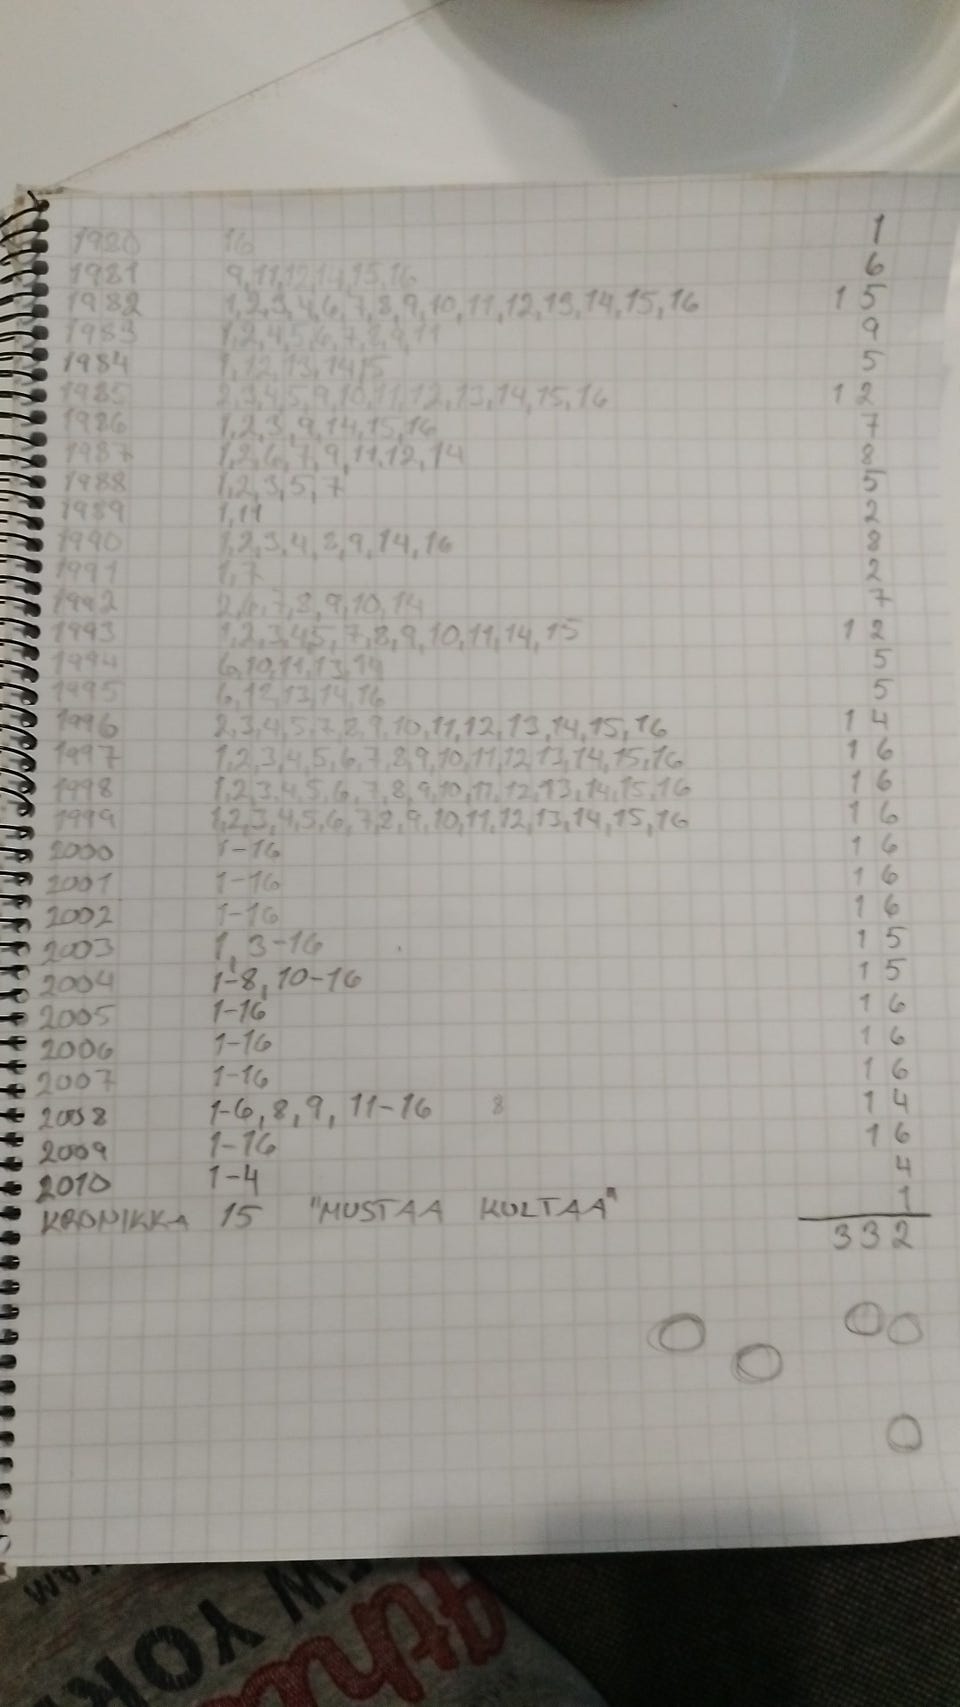 1980 16 1
1981 9,11,12,14,15,16 6
1982 1,2,3,4,6,7,8,9,10,11,12,13,14,15,16 15
1983 1,2,4,5,6,7,8,9,11 9
1984 1,12,13,14,15 5
1985 2,3,4,5,9,10,11,12,13,14,15,16 12
1986 1,2,3,9,14,15,16 7
1987 1,2,6,7,9,11,12,14 8
1988 1,2,3,5,7 5
1989 1,11 2
1990 1,2,3,4,8,9,14,16 8
1991 1,7 2
1992 2,6,7,8,9,10,14 7
1993 1,2,3,4,5,7,8,9,10,11,14,15 12
1994 6,10,11,13,14 5
1995 6,12,13,14,16 5
1996 2,3,4,5,7,8,9,10,11,12,13,14,15,16 14
1997 1,2,3,4,5,6,7,8,9,10,11,12,13,14,15,16 16
1998 1,2,3,4,5,6,7,8,9,10,11,12,13,14,15,16 16
1999 1,2,3,4,5,6,7,8,9,10,11,12,13,14,15,16 16
2000 1-16 16
2001 1-16 16
2002 1-16 16
2003 1, 3-16 15
2004 1-8, 10-16 15
2005 1-16 16
2006 1-16 16
2007 1-16 16
2008 1-6, 8, 9, 11-16 8 14
2009 1-16 16
2010 1-4 4
KRONIKKA 15 "MUSTAA KULTAA" 1
332
NEW YORK